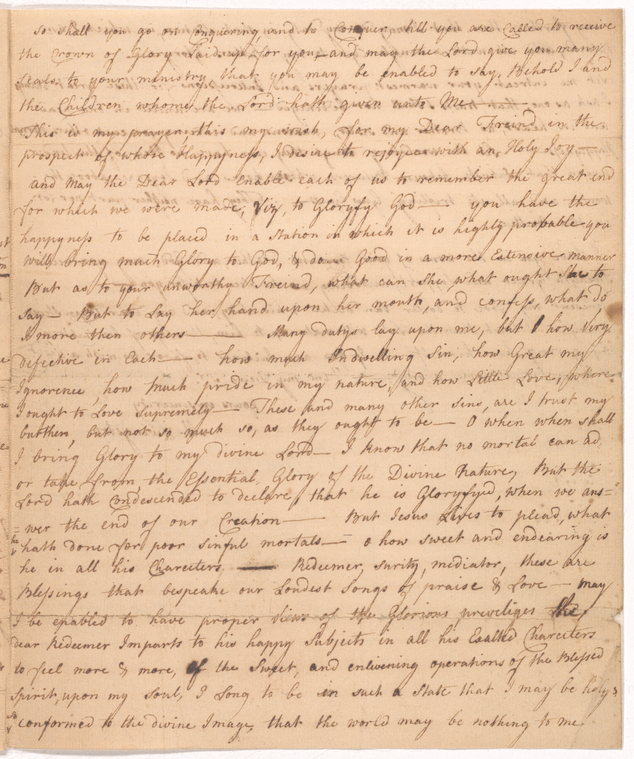 so shall you go on Conquering and to Conquer, till you are Called to receive
the Crown of Glory Laid up for you and may the Lord give you many
Seals to your ministry, that you may be enabled to say, Behold I and
the Children whome the Lord hath given unto Me —
This is my prayer, this my wish, for my Dear Freind in the
prospect of whose Happyness, I desire to rejoyce with an Holy Joy —
and May the Dear Lord Enable each of us to remember the great end
for which we were made, Viz, to Gloryfy God — you have the
happyness to be placed in a Station in which it is highly probable you
will bring much Glory to God, & do Good in a more Extensive manner
But as to your unworthy Freind, what can she what ought she to
say — But to Lay her hand upon her mouth, and confess, what do
I more then others — Many dutys lay upon me, but how Very
defective in Each — how much Indwelling Sin, how Great my
Ignorence, how much pride in my nature, and how Little Love, where
I ought to Love Supremely — These and many other Sins, are I trust my
burthen, but not so much so, as they ought to be — O when when shall
I bring Glory to my divine Lord — I know that no mortal can ad
or take from the Essential Glory of the Divine Nature, But the
Lord hath Condescended to declare, that he is Gloryfyed, when we ans=
=wer the end of our Creation — But Jesus Lives to plead, what
he hath done for poor sinful mortals — o how sweet and endearing is
he in all his Charecters. — Redeemer, surity, mediator, these are
Blessings that bespeake our Loudest Songs of praise & Love — may
I be enabled to have proper Views of the Glorious previliges the
dear Redeemer Imparts to his happy Subjects in all his Exalted Charecters
to feel more & more, of the Sweet, and enlivening operations of the Blessed
Spirit, upon my Soul, I Long to be in such a State that I may be holy &
conformed to the divine Image, that the world may be nothing to me